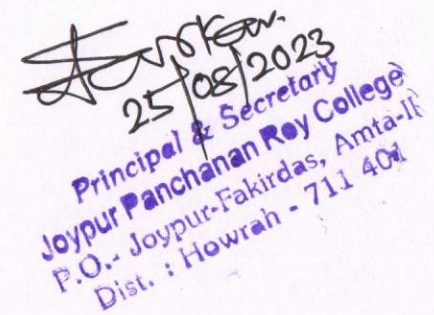 25/08/2023
Principal & Secretary
Joypur Panchanan Roy College
P.O.- Joypur-Fakirdas, Amta-II
Dist. : Howrah - 711 401